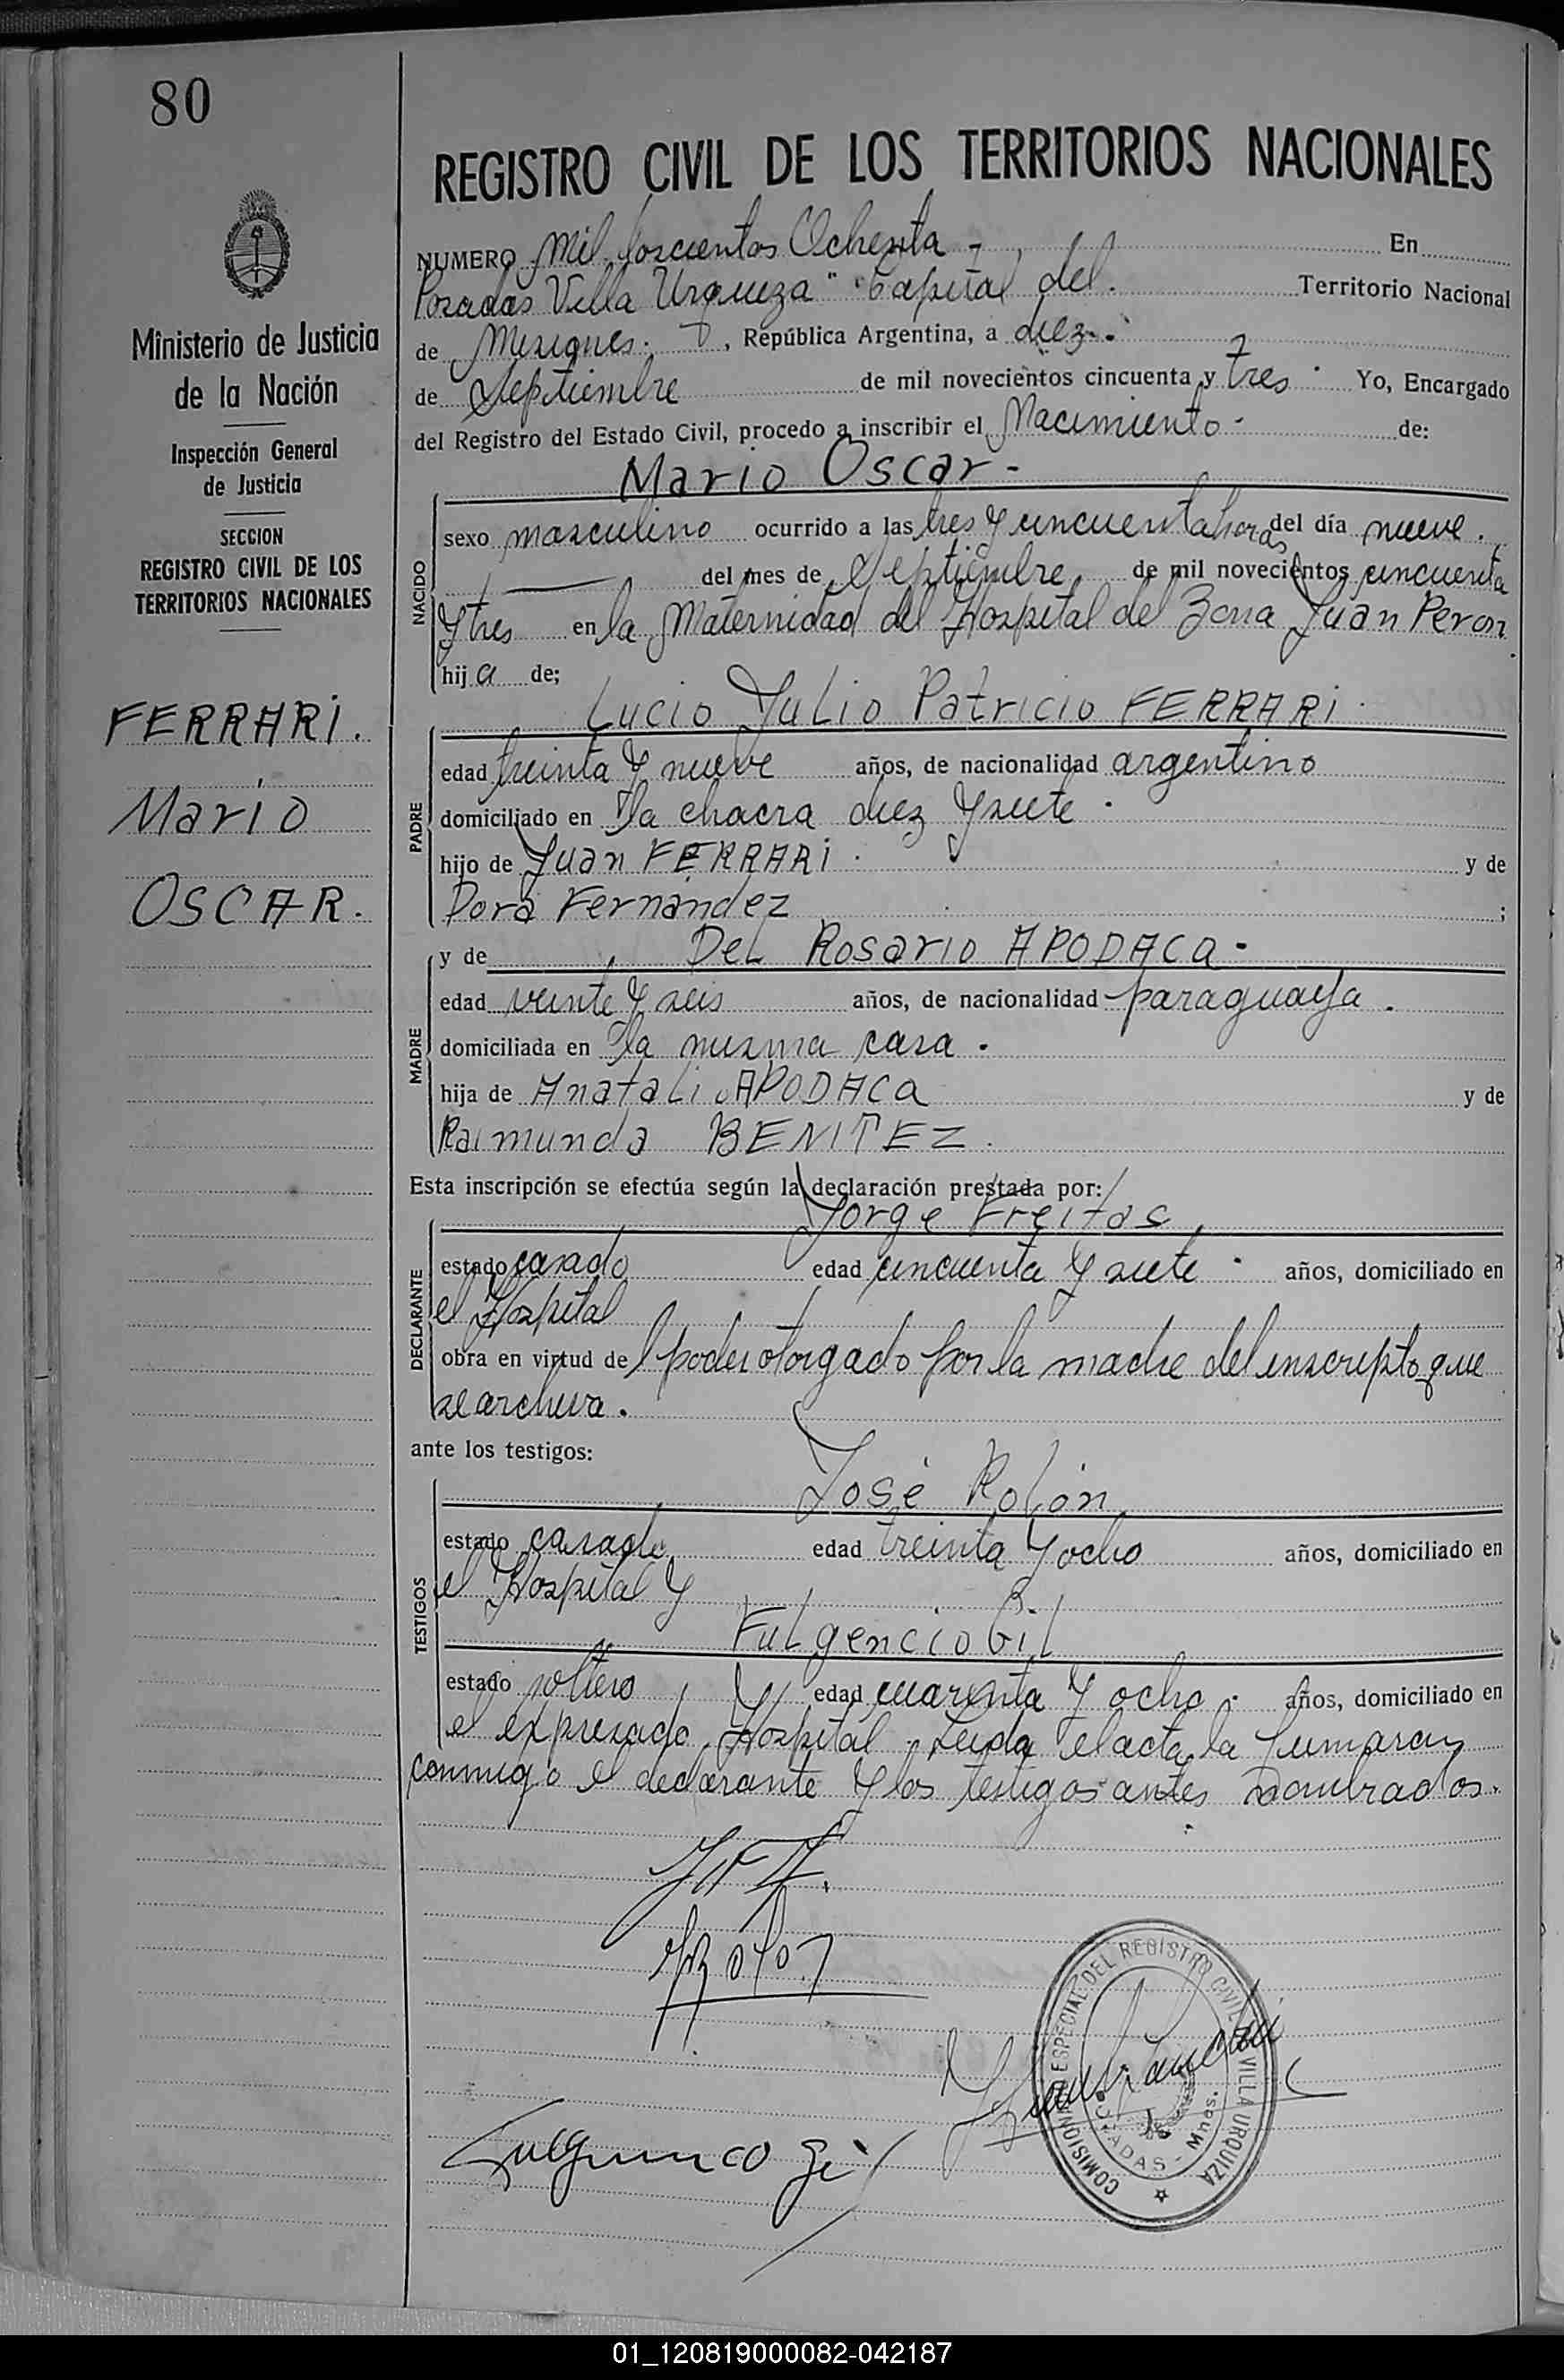 80
REGISTRO CIVIL DE LOS TERRITORIOS NACIONALES
Ministerio de Justicia
de la Nación
Inspección General
de Justicia
SECCION
REGISTRO CIVIL DE LOS
TERRITORIOS NACIONALES
FERRARI.
Mario
OSCAR.
NUMERO Mil doscientos Ochenta - En
Posadas Villa Urquiza" Capital del. Territorio Nacional
de Misiones. , República Argentina, a diez.
de Septiembre de mil novecientos cincuenta y tres. Yo, Encargado
del Registro del Estado Civil, procedo a inscribir el Nacimiento - de:
Mario Oscar -
NACIDO
sexo masculino ocurrido a las tres y cincuenta horas del día nueve.
del mes de Septiembre de mil novecientos cincuenta
y tres en la Maternidad del Hospital de Zona Juan Peron
hij a de;
Lucio Julio Patricio FERRARI.
PADRE
edad treinta y nueve años, de nacionalidad argentino
domiciliado en la chacra diez y siete.
hijo de Juan FERRARI. y de
Dora Fernández ;
y de Del Rosario APODACA -
MADRE
edad veinte y seis años, de nacionalidad paraguaya.
domiciliada en la misma casa.
hija de Anatali APODACA y de
Raimunda BENITEZ.
Esta inscripción se efectúa según la declaración prestada por:
Jorge Freitas
DECLARANTE
estado casado edad cincuenta y siete. años, domiciliado en
el Hospital
obra en virtud del poder otorgado por la madre del inscripto que
se archiva.
ante los testigos:
José Rolón
TESTIGOS
estado casado edad treinta y ocho años, domiciliado en
el Hospital y
Fulgencio Gil
estado soltero edad cuarenta y ocho. años, domiciliado en
el expresado Hospital. Leida el acta la firmaron
conmigo el declarante y los testigos antes nombrados.
Fulgencio Gil
COMISION ESPECIAL DEL REGISTRO CIVIL VILLA URQUIZA
POSADAS - Mnes.
01_120819000082-042187